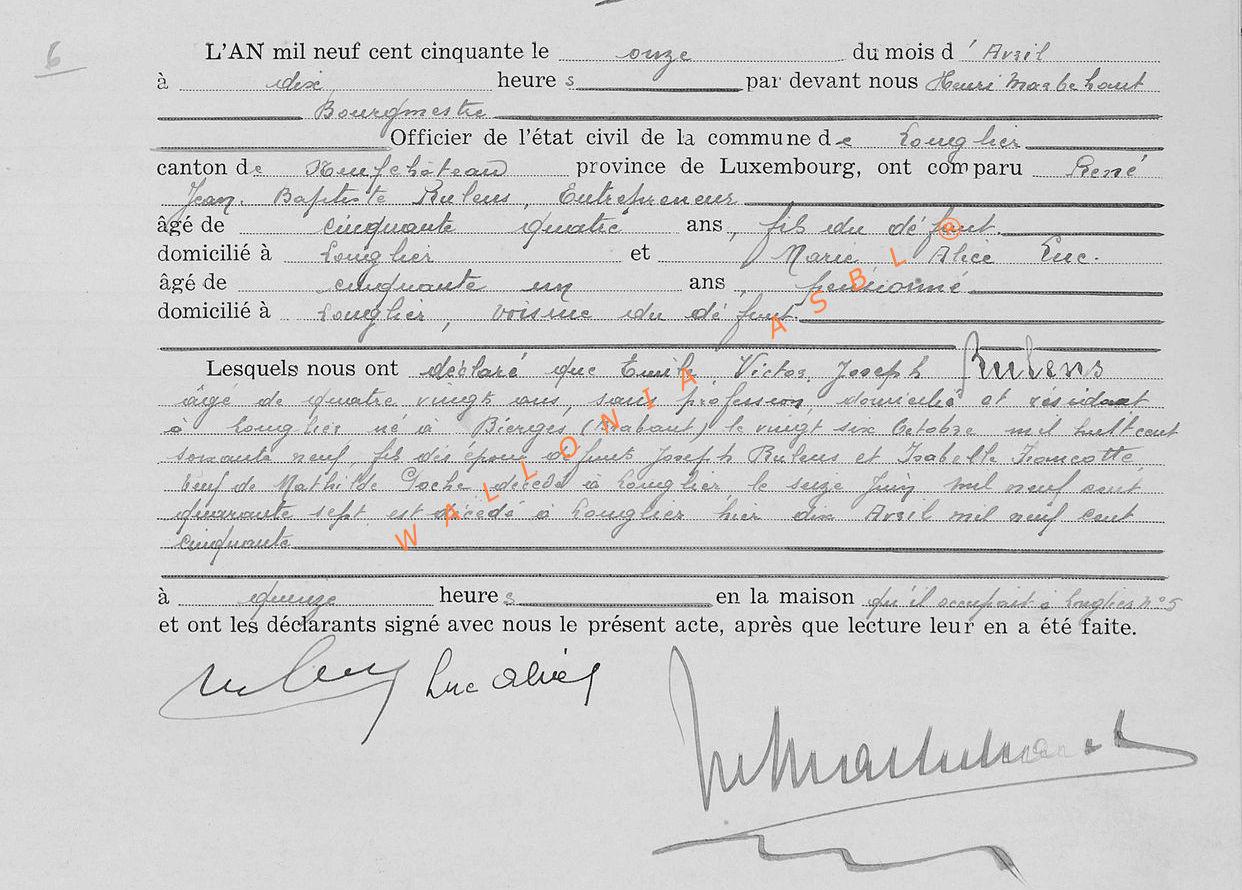 6
L'AN mil neuf cent cinquante le onze du mois d'Avril
à dix heures par devant nous Henri Marbehant
Bourgmestre
Officier de l'état civil de la commune de Longlier
canton de Neufchâteau province de Luxembourg, ont comparu René
Jean-Baptiste Rulens, Entrepreneur
âgé de cinquante quatre ans, fils du défunt
domicilié à Longlier et Marie Alice Luc.
âgé de cinquante un ans, pensionné
domicilié à Longlier, voisine du défunt.
Lesquels nous ont déclaré que Emile, Victor, Joseph Rulens
âgé de quatre vingts ans, sans profession, domicilié et résidant
à Longlier né à Bierges (Brabant) le vingt six Octobre mil huit cent
soixante neuf, fils des époux défunts Joseph Rulens et Isabelle Francotte,
veuf de Mathilde décédée à Longlier, le seize Juin mil neuf cent
quarante sept est décédé à Longlier hier dix Avril mil neuf cent
cinquante
à quinze heures en la maison qu'il occupait à Longlier n° 5
et ont les déclarants signé avec nous le présent acte, après que lecture leur en a été faite.
Luc Alice
WALLONIA ASBL @